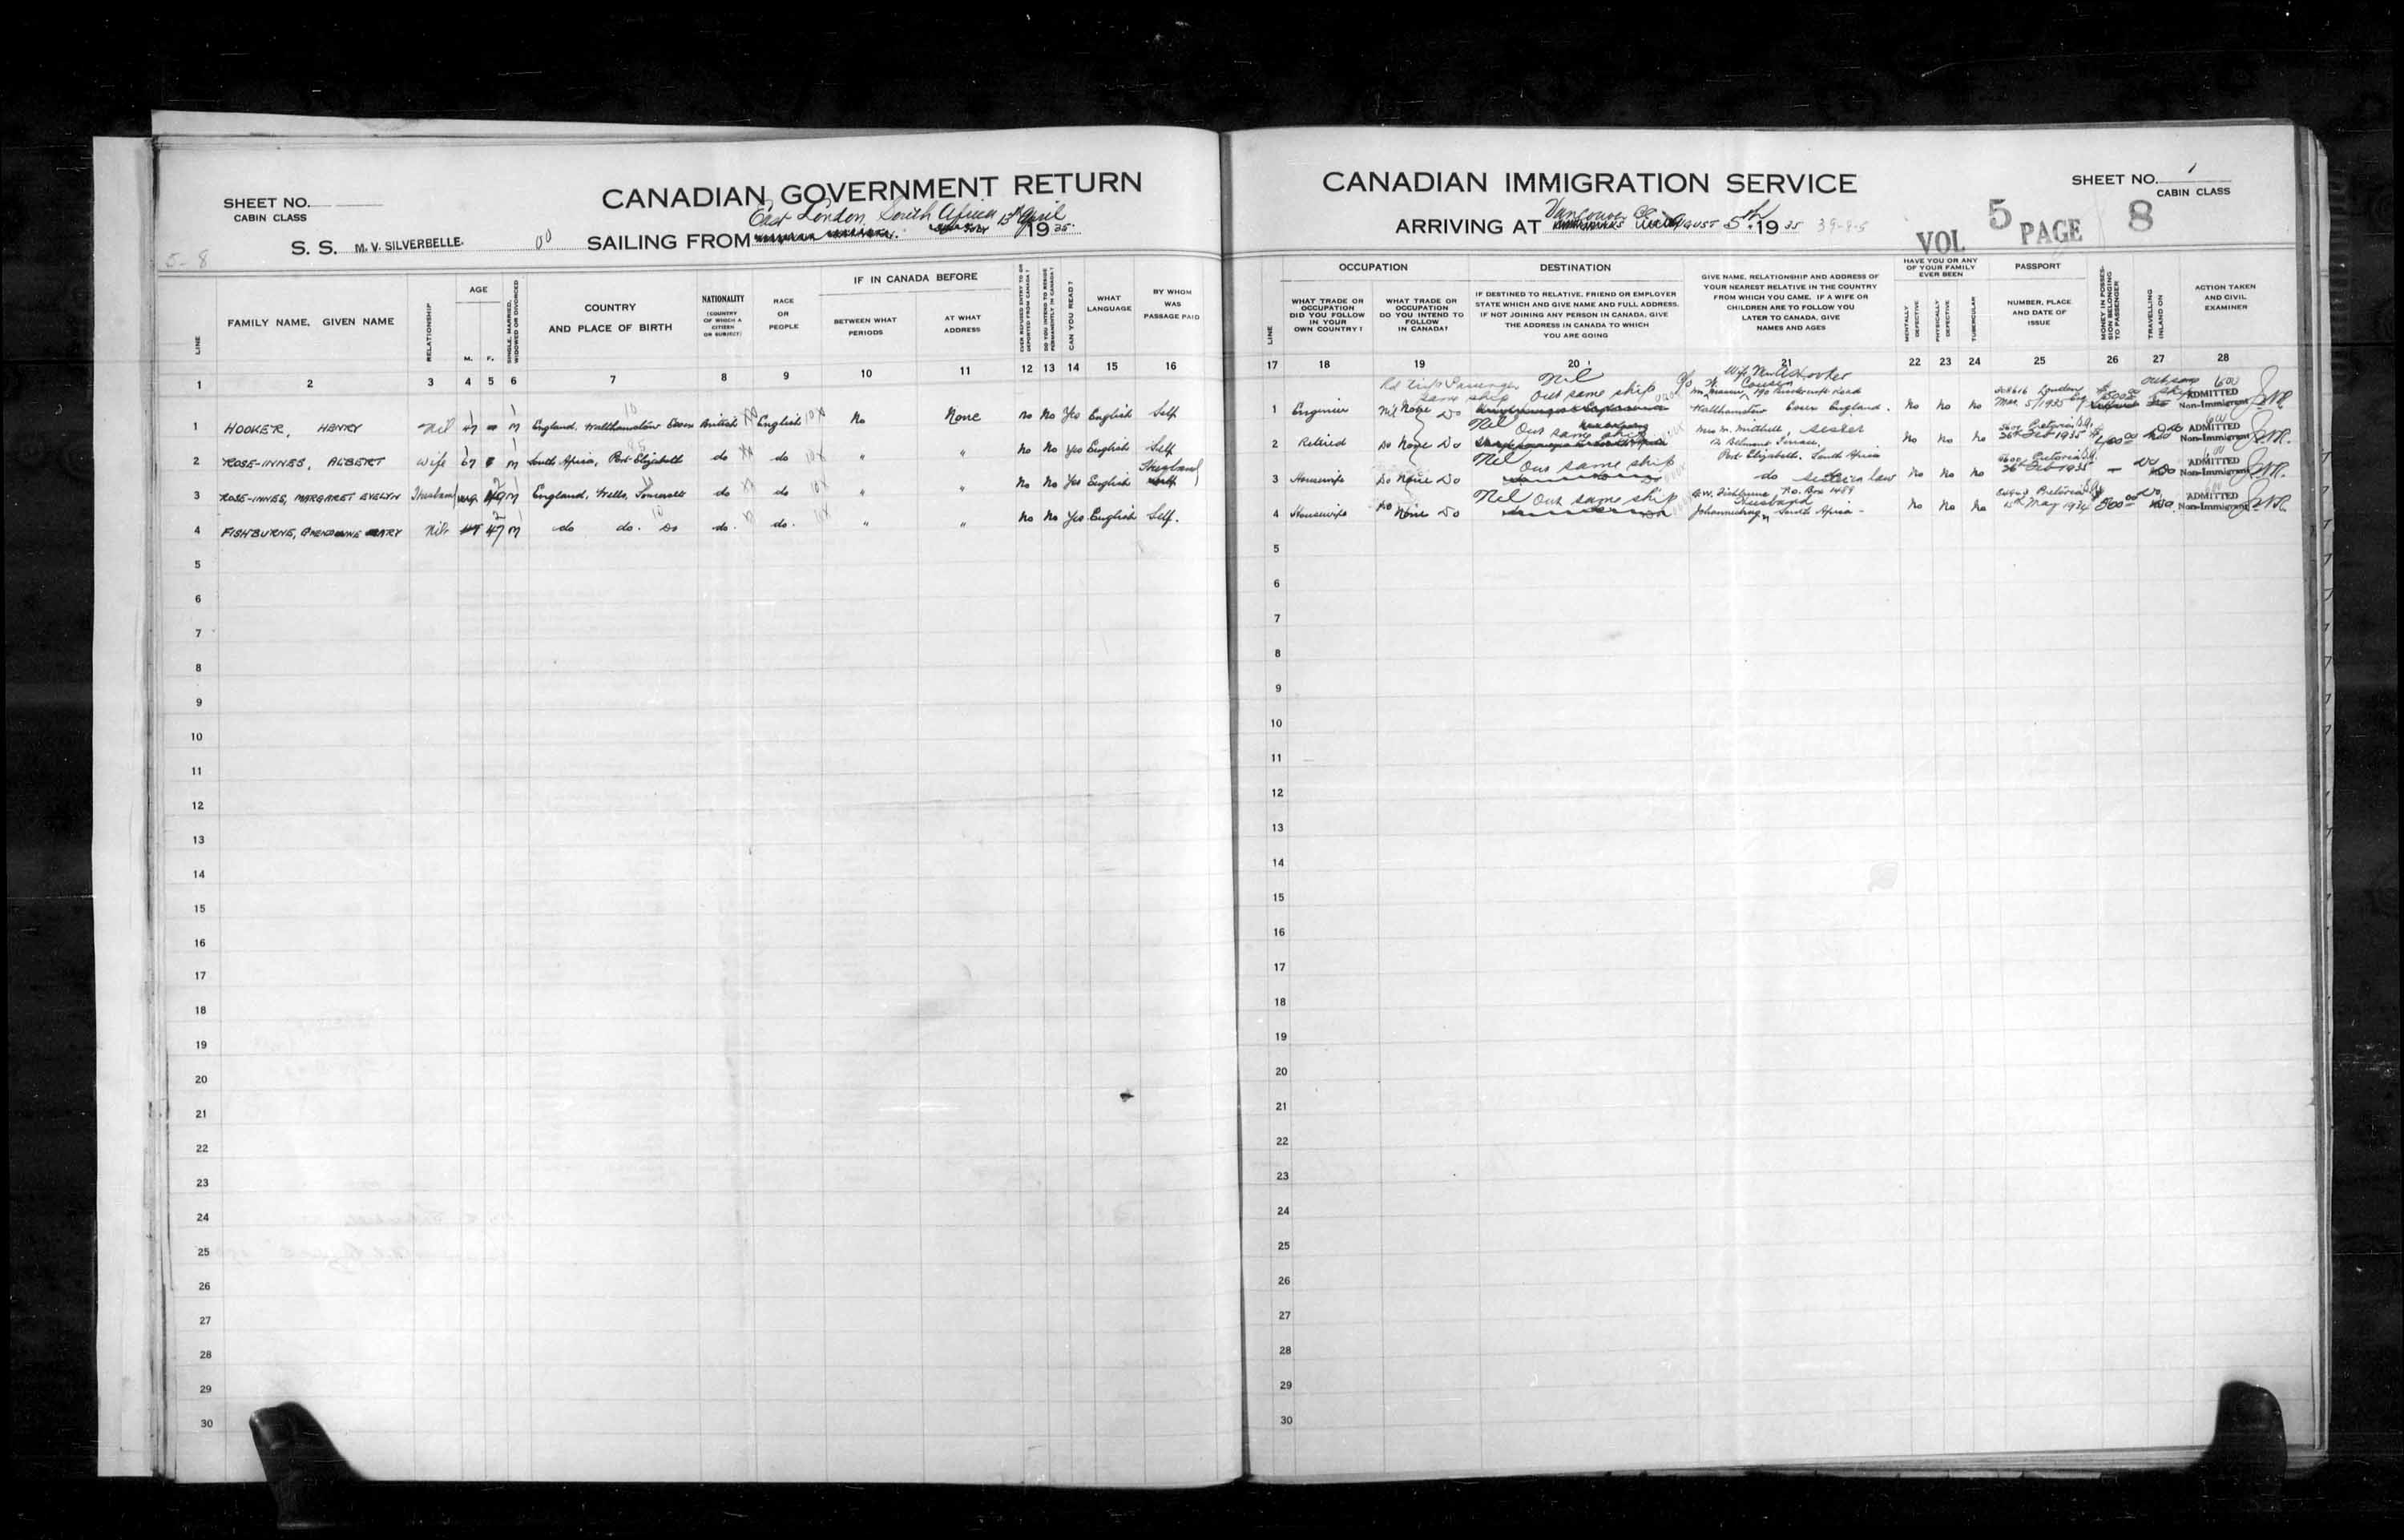 SHEET NO.
CABIN CLASS
CANADIAN GOVERNMENT RETURN
East London, South Africa 15th April
S. S. M. V. SILVERBELLE. 00 SAILING FROM 1935.
5-8
LINE
FAMILY NAME, GIVEN NAME
RELATIONSHIP
AGE
M. F.
SINGLE, MARRIED, WIDOWED OR DIVORCED
COUNTRY
AND PLACE OF BIRTH
NATIONALITY
(COUNTRY OF WHICH A CITIZEN OR SUBJECT)
RACE
OR
PEOPLE
IF IN CANADA BEFORE
BETWEEN WHAT
PERIODS
AT WHAT
ADDRESS
EVER REFUSED ENTRY TO OR DEPORTED FROM CANADA?
DO YOU INTEND TO RESIDE PERMANENTLY IN CANADA?
CAN YOU READ?
WHAT
LANGUAGE
BY WHOM
WAS
PASSAGE PAID
1 2 3 4 5 6 7 8 9 10 11 12 13 14 15 16
1 HOOKER, HENRY Nil 47 M England, Walthamstow Essex British English No None No No Yes English Self
2 ROSE-INNES, ALBERT Wife 67 M South Africa, Port Elizabeth do do " " No No Yes English Self
3 ROSE-INNES, MARGARET EVELYN Husband 49 M England, Wells, Somerset do do " " No No Yes English Husband
4 FISHBURNE, MARY Nil 47 M do do. Do do. do. " " No No Yes English Self.
5
6
7
8
9
10
11
12
13
14
15
16
17
18
19
20
21
22
23
24
25
26
27
28
29
30
CANADIAN IMMIGRATION SERVICE
SHEET NO. 1
CABIN CLASS
ARRIVING AT Vancouver BC AUGUST 5th. 1935
VOL 5 PAGE 8
LINE
OCCUPATION
WHAT TRADE OR OCCUPATION DID YOU FOLLOW IN YOUR OWN COUNTRY?
WHAT TRADE OR OCCUPATION DO YOU INTEND TO FOLLOW IN CANADA?
DESTINATION
IF DESTINED TO RELATIVE, FRIEND OR EMPLOYER
STATE WHICH AND GIVE NAME AND FULL ADDRESS.
IF NOT JOINING ANY PERSON IN CANADA, GIVE
THE ADDRESS IN CANADA TO WHICH
YOU ARE GOING
GIVE NAME, RELATIONSHIP AND ADDRESS OF
YOUR NEAREST RELATIVE IN THE COUNTRY
FROM WHICH YOU CAME. IF A WIFE OR
CHILDREN ARE TO FOLLOW YOU
LATER TO CANADA, GIVE
NAMES AND AGES
HAVE YOU OR ANY OF YOUR FAMILY EVER BEEN
MENTALLY DEFECTIVE
PHYSICALLY DEFECTIVE
TUBERCULAR
PASSPORT
NUMBER, PLACE
AND DATE OF
ISSUE
MONEY IN POSSESSION BELONGING TO PASSENGER
TRAVELLING INLAND ON
ACTION TAKEN
AND CIVIL
EXAMINER
17 18 19 20 21 22 23 24 25 26 27 28
Rd Trip Passenger same ship Nil Out same ship Wife Mrs A Hooker
1 Engineer Nil None Do Walthamstow Essex England. No No No London Mar 5/1935 ADMITTED Non-Immigrant
2 Retired Do None Do Nil Out same ship Mrs M. Mitchell, sister Belmont Terrace, Port Elizabeth, South Africa No No No Pretoria 26th Feb 1935 ADMITTED Non-Immigrant
3 Housewife Do None Do Nil Out same ship do sister in law No No No Pretoria 26 Feb 1935 — Do ADMITTED Non-Immigrant
4 Housewife Do None Do Nil Out same ship G.W. Fishburne P.O. Box Husband Johannesburg, South Africa - No No No Pretoria 15th May 1934 ADMITTED Non-Immigrant
5
6
7
8
9
10
11
12
13
14
15
16
17
18
19
20
21
22
23
24
25
26
27
28
29
30